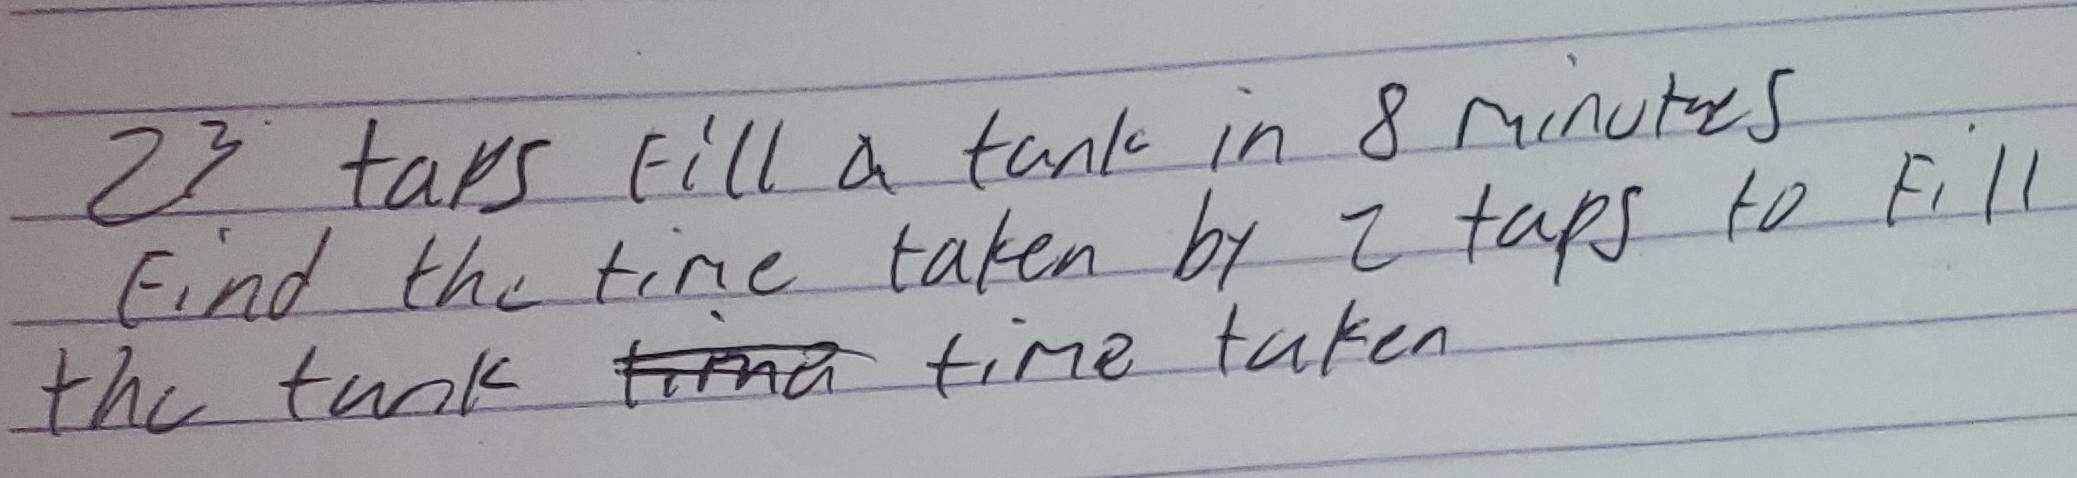 23 taps Fill a tank in 8 minutes
Find the time taken by 2 taps to Fill
the tank time taken